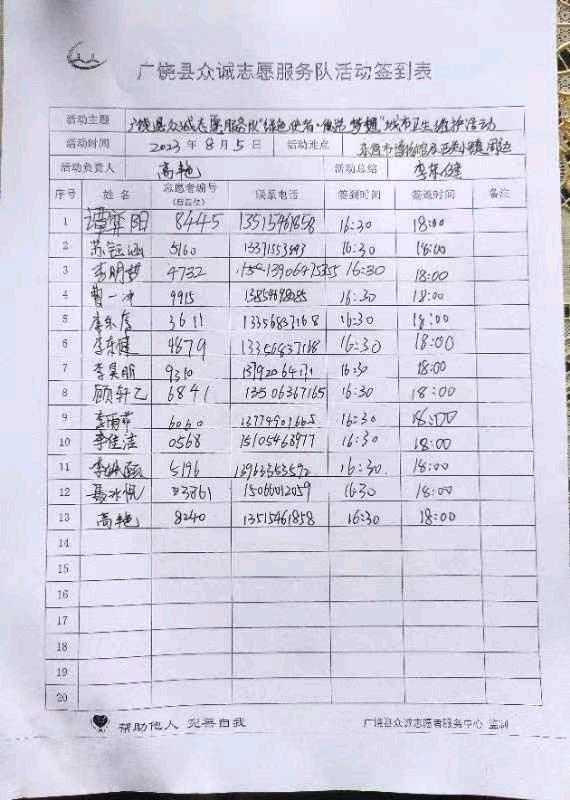 广饶县众诚志愿服务队活动签到表
活动主题 广饶县众诚志愿服务队"绿色使者·传递梦想"城市卫生维护活动
活动时间 2023年8月5日 活动地点 东营市博物馆及西来小镇周边
活动负责人 高艳 活动总结 李东健
序号 姓名 志愿者编号（后四位） 联系电话 签到时间 签退时间 备注
1 谭弈阳 8445 13515461858 16:30 18:00
2 苏钰涵 5160 16:30 18:00
3 李明梦 4732 16:30 18:00
4 曹一冲 9915 16:30 18:00
5 李乐彦 3611 13356837168 16:30 18:00
6 李东健 4879 13356837168 16:30 18:00
7 李昊朋 9310 16:30 18:00
8 顾轩乙 6841 13506367165 16:30 18:00
9 李雨 6060 13774901605 16:30 18:00
10 李佳洁 0568 15105463977 16:30 18:00
11 李 5196 13963353592 16:30 18:00
12 聂冰悦 3861 15066012059 1630 18:00
13 高艳 8240 13515461858 16:30 18:00
14
15
16
17
18
19
20
帮助他人 完善自我 广饶县众诚志愿者服务中心 监制